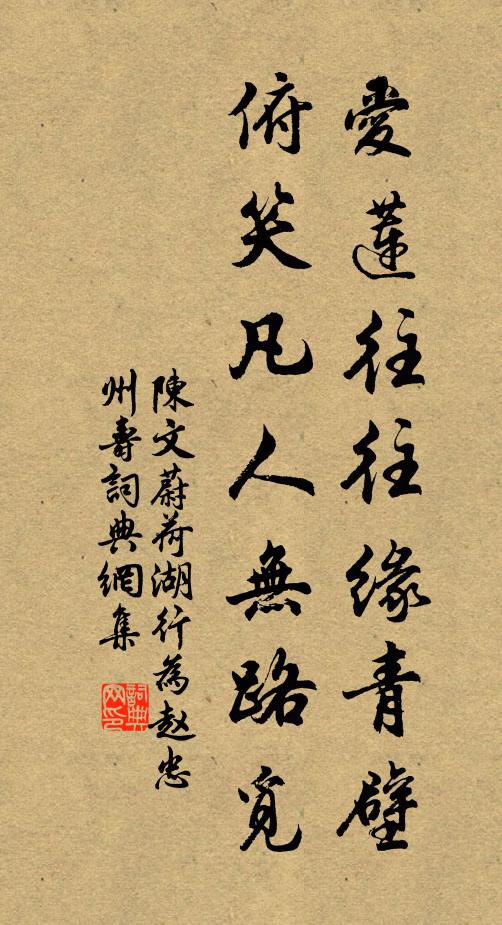 愛蓮往往緣青壁
俯笑凡人無路覓
陳文蔚荷湖行為赵忠
州壽詞典網集
詞典网印